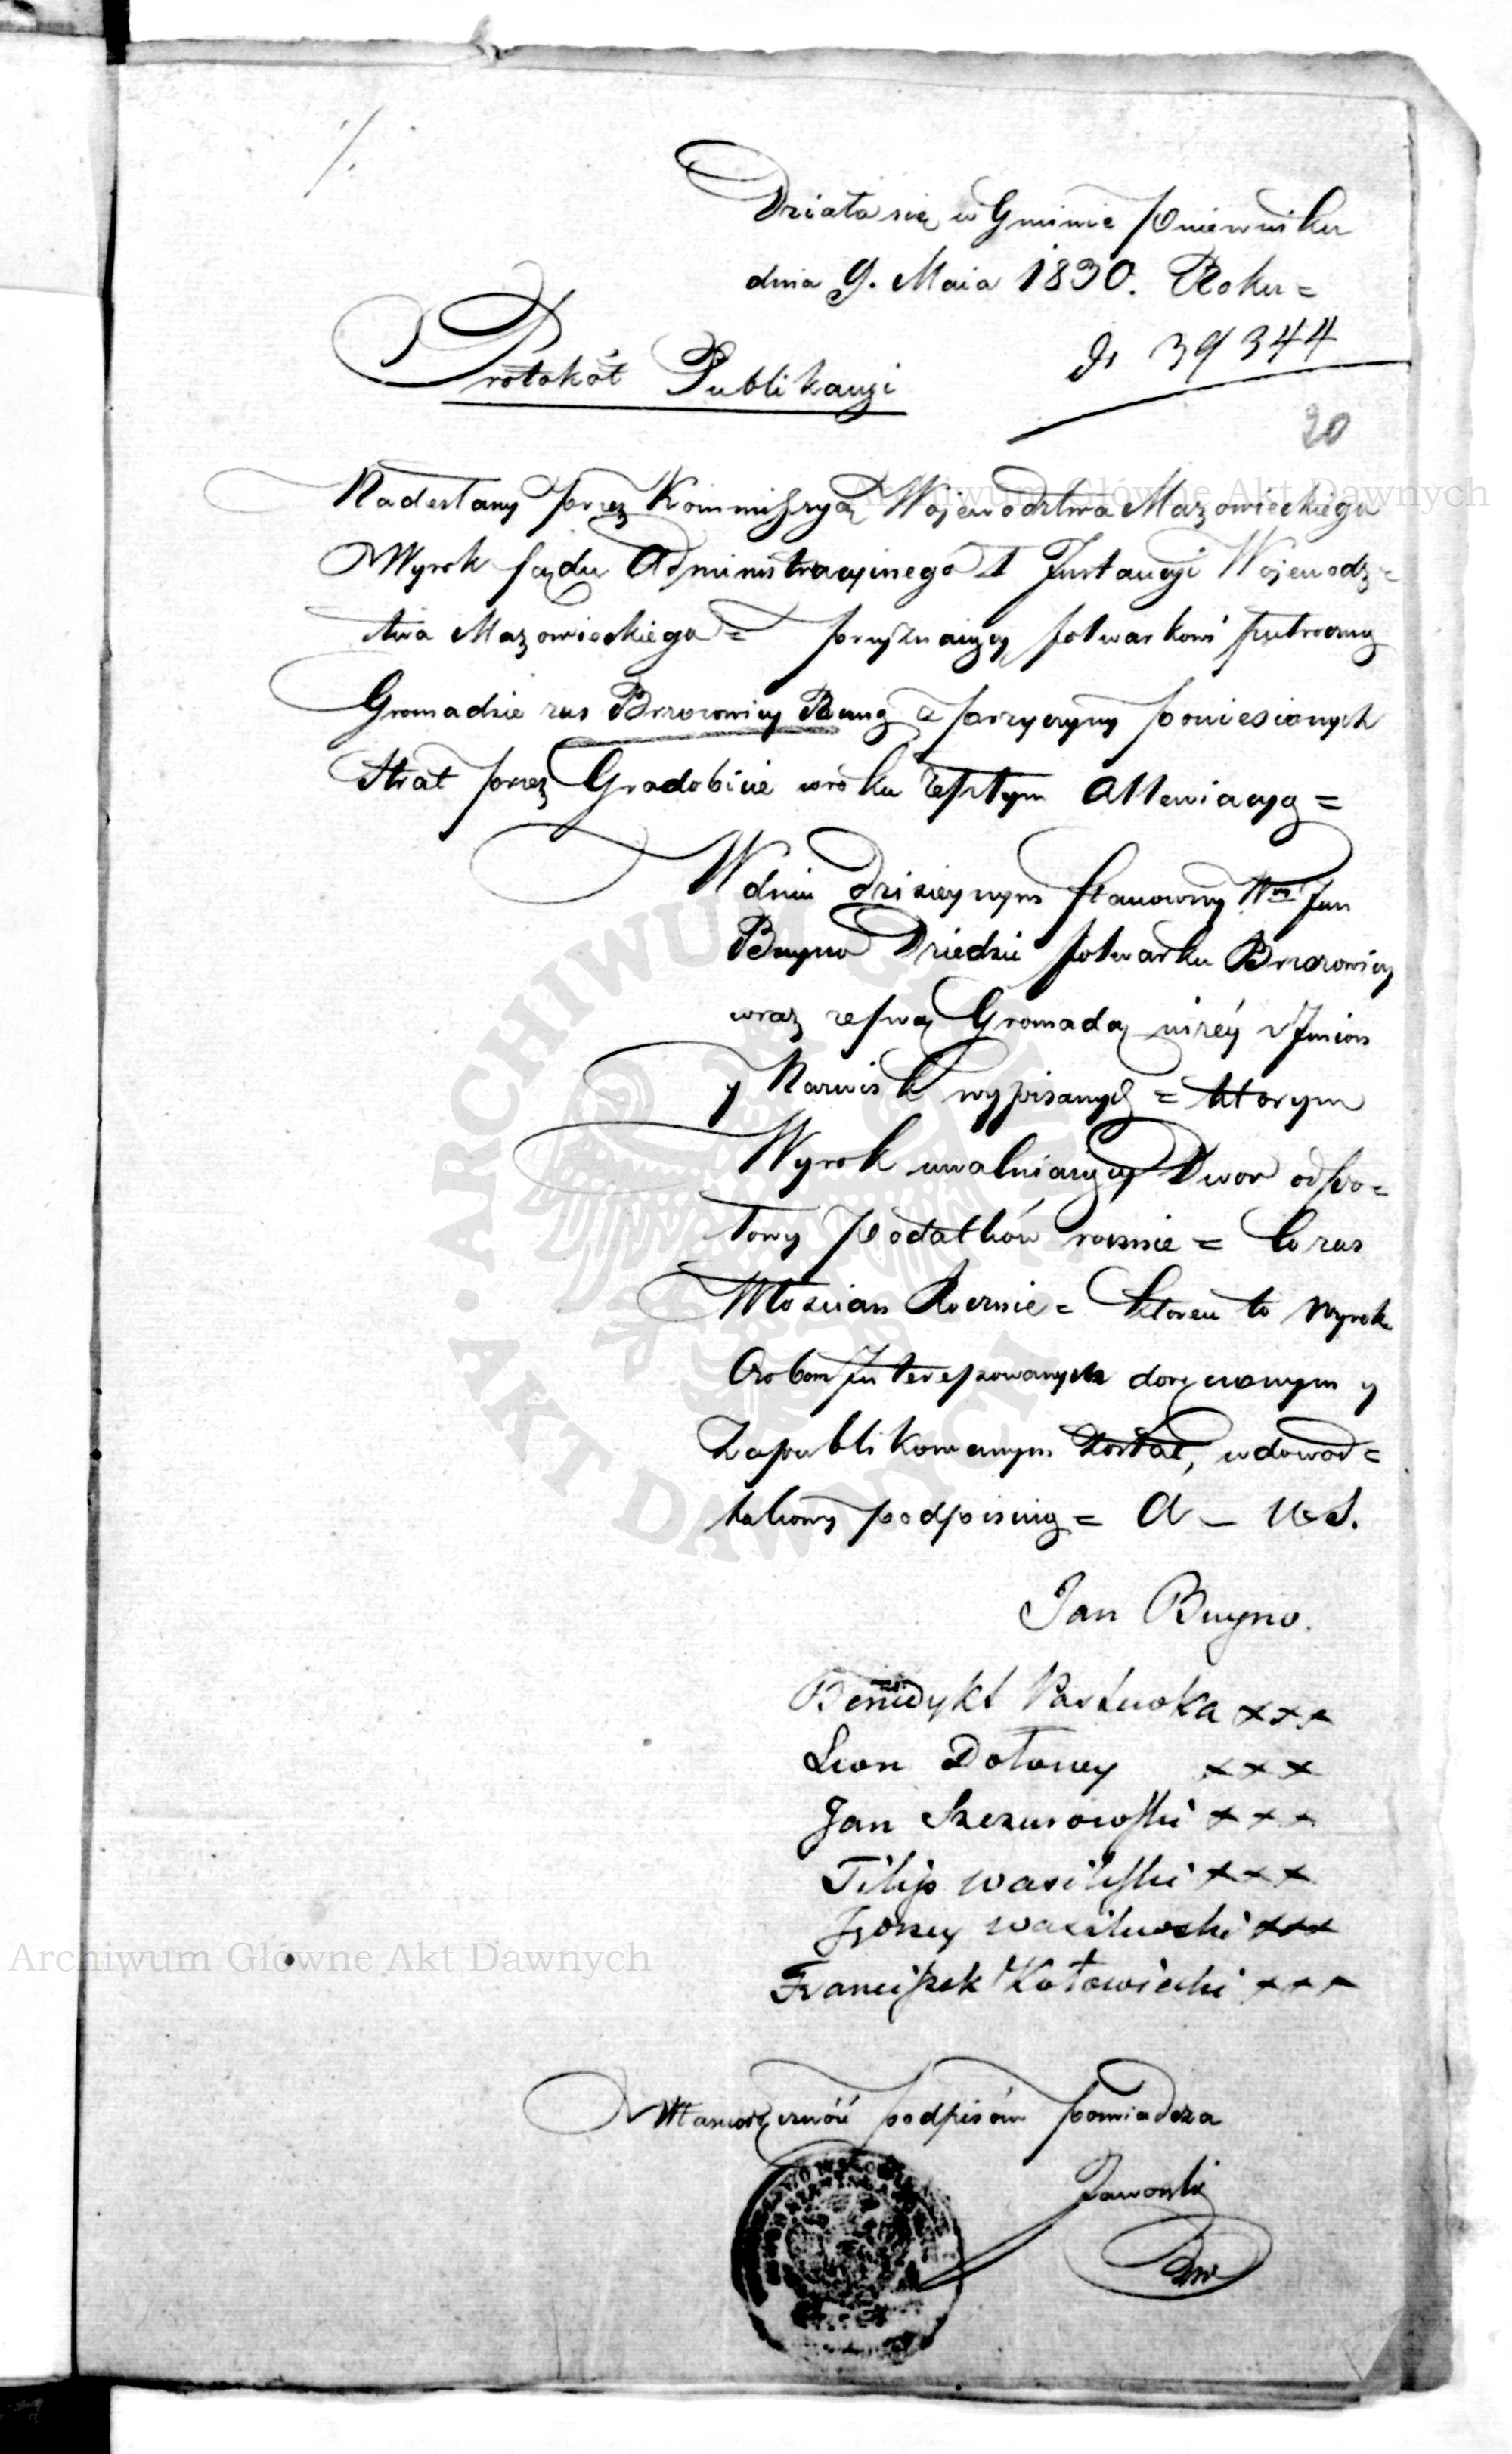 Działo się w Gminie Pniewniku
dnia 9. Maia 1830. Roku =
39344
Protokół Publikacyi
20
Nadesłany przez Kommissyą Województwa Mazowieckiego
Wyrok Sądu Administracyinego I Instancyi Wojewodz=
twa Mazowieckiego = przyznaiący folwarkowi
Gromadzie zas Brzozowicy z przyczyny poniesionych
Strat przez Gradobicie w roku zeszłym Allewiacyą =
W dniu dzisieyszym Stanowszy Wny Jan
Buyno Dziedzic folwarku Brzozowicy
wraz ze swą Gromadą niżéy z Imion
y Nazwisk wypisanych = którym
Wyrok uwalniaiący Dwor od po=
łowy Podatków rocznie = Co zas
Włoscian Rocznie = któren to Wyrok
Osobom Interessowanym doręczonym y
Zapublikowanym został, w dowod =
takowy podpisuią =
Jan Buyno.
Benedykt Pastwoka xxx
Leon xxx
Jan Szczurowski xxx
Filip Wasilefski xxx
Wasilewski xxx
Franciszek Kotowiecki xxx
Własnoręczność podpisów poswiadcza
Jaworski
Archiwum Główne Akt Dawnych
Archiwum Główne Akt Dawnych
ARCHIWUM GŁÓWNE AKT DAWNYCH